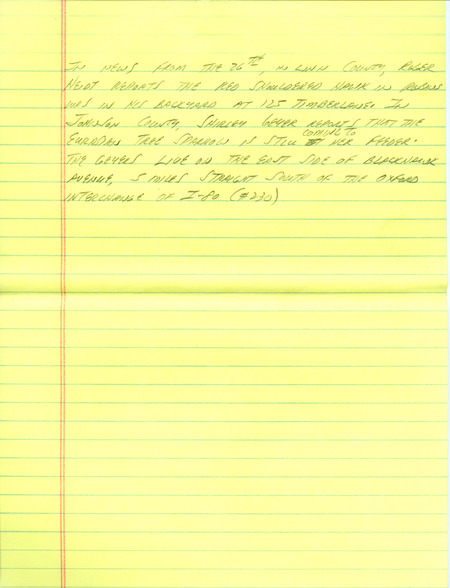 In news from the 26th, in Linn County, Roger
Heidt reports the red shouldered hawk in
was in his backyard at 125 Timberlane. In
Johnson County, Shirley Geyer reports that the
Eurodian Tree Sparrow is still coming to her feeder.
The Geyers live on the east side of Blackhawk
Avenue, 5 miles straight south of the Oxford
interchange of I-80 (#230)